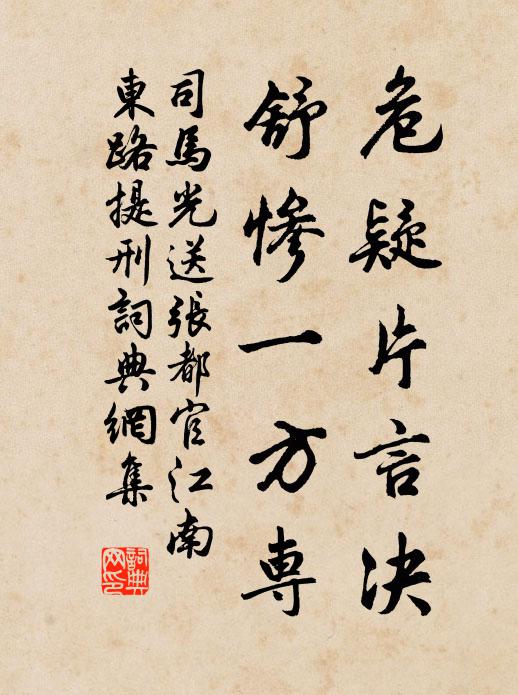 危疑片言决
舒惨一方専
司馬光送張都官江南
東路提刑詞典網集
詞典網印